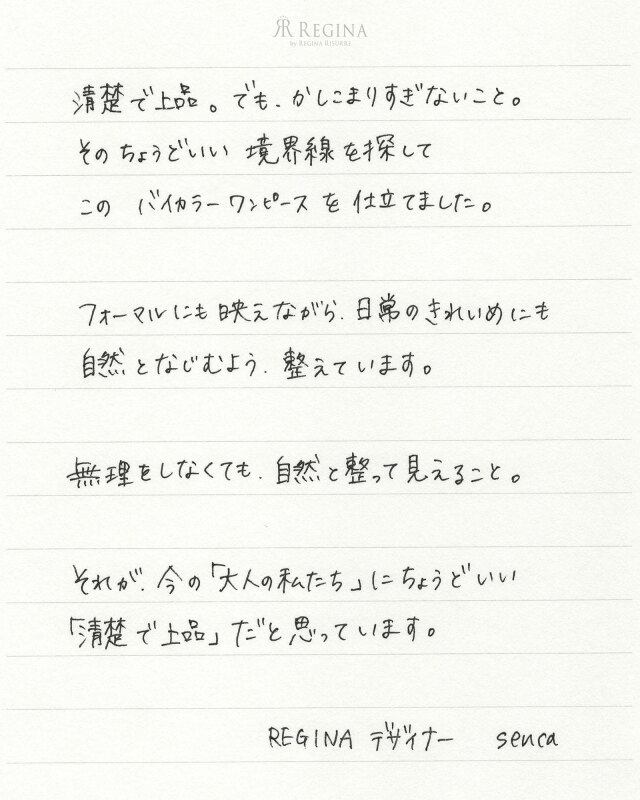 RR REGINA
by REGINA RISURRE
清楚で上品。でも、かしこまりすぎないこと。
そのちょうどいい 境界線を探して
この バイカラーワンピースを仕立てました。
フォーマルにも映えながら、日常のきれいめにも
自然となじむよう、整えています。
無理をしなくても、自然と整って見えること。
それが、今の「大人の私たち」にちょうどいい
「清楚で上品」だと思っています。
REGINA デザイナー senca